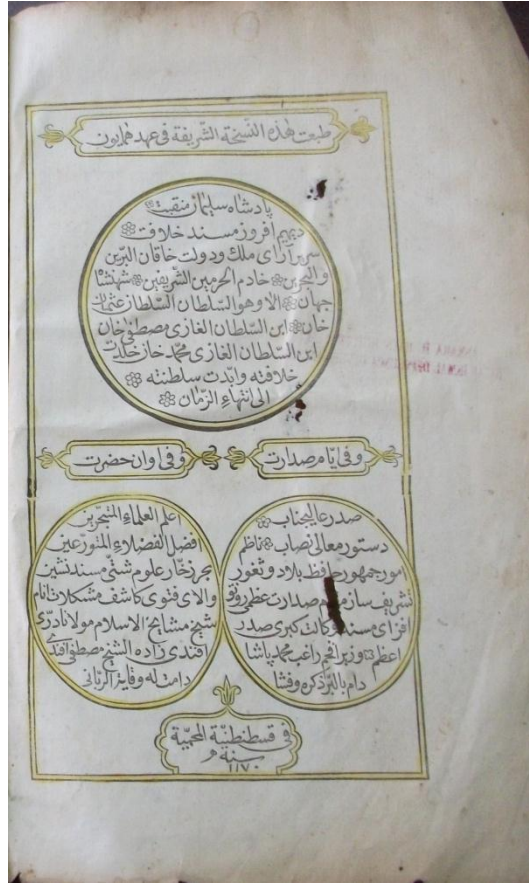 طبعت هذه النسخة الشريفة فى عهد همايون
پادشاه سليمان منقبت
ديهيم افروز مسند خلافت
سرير آراى ملك ودولت خاقان البرين
والبحرين خادم الحرمين الشريفين شهنشاه
جهان الا وهو السلطان السلطان عثمان
خان ابن السلطان الغازى مصطفى خان
ابن السلطان الغازى محمد خان خلدت
خلافته وابدت سلطنته
الى انتهاء الزمان
وفى ايام صدارت
صدر عاليجناب
دستور معالى نصاب ناظم
امور جمهور حافظ بلاد وثغور
تشريف ساز صدارت عظمى رونق
افزاى مسند وكالت كبرى صدر
اعظم ووزير افخم راغب محمد پاشا
دام بالبر ذكره وفشا
وفى اوان حضرت
اعلم العلماء المتبحرين
افضل الفضلاء المتورعين
بحر زخار علوم شتى مسند نشين
والاى فتوى كاشف مشكلات انام
شيخ مشايخ الاسلام مولانا درى
افندى زاده الشيخ مصطفى افندى
دامت له وقاية الربانى
فى قسطنطنية المحمية
سنة ١١٧٠